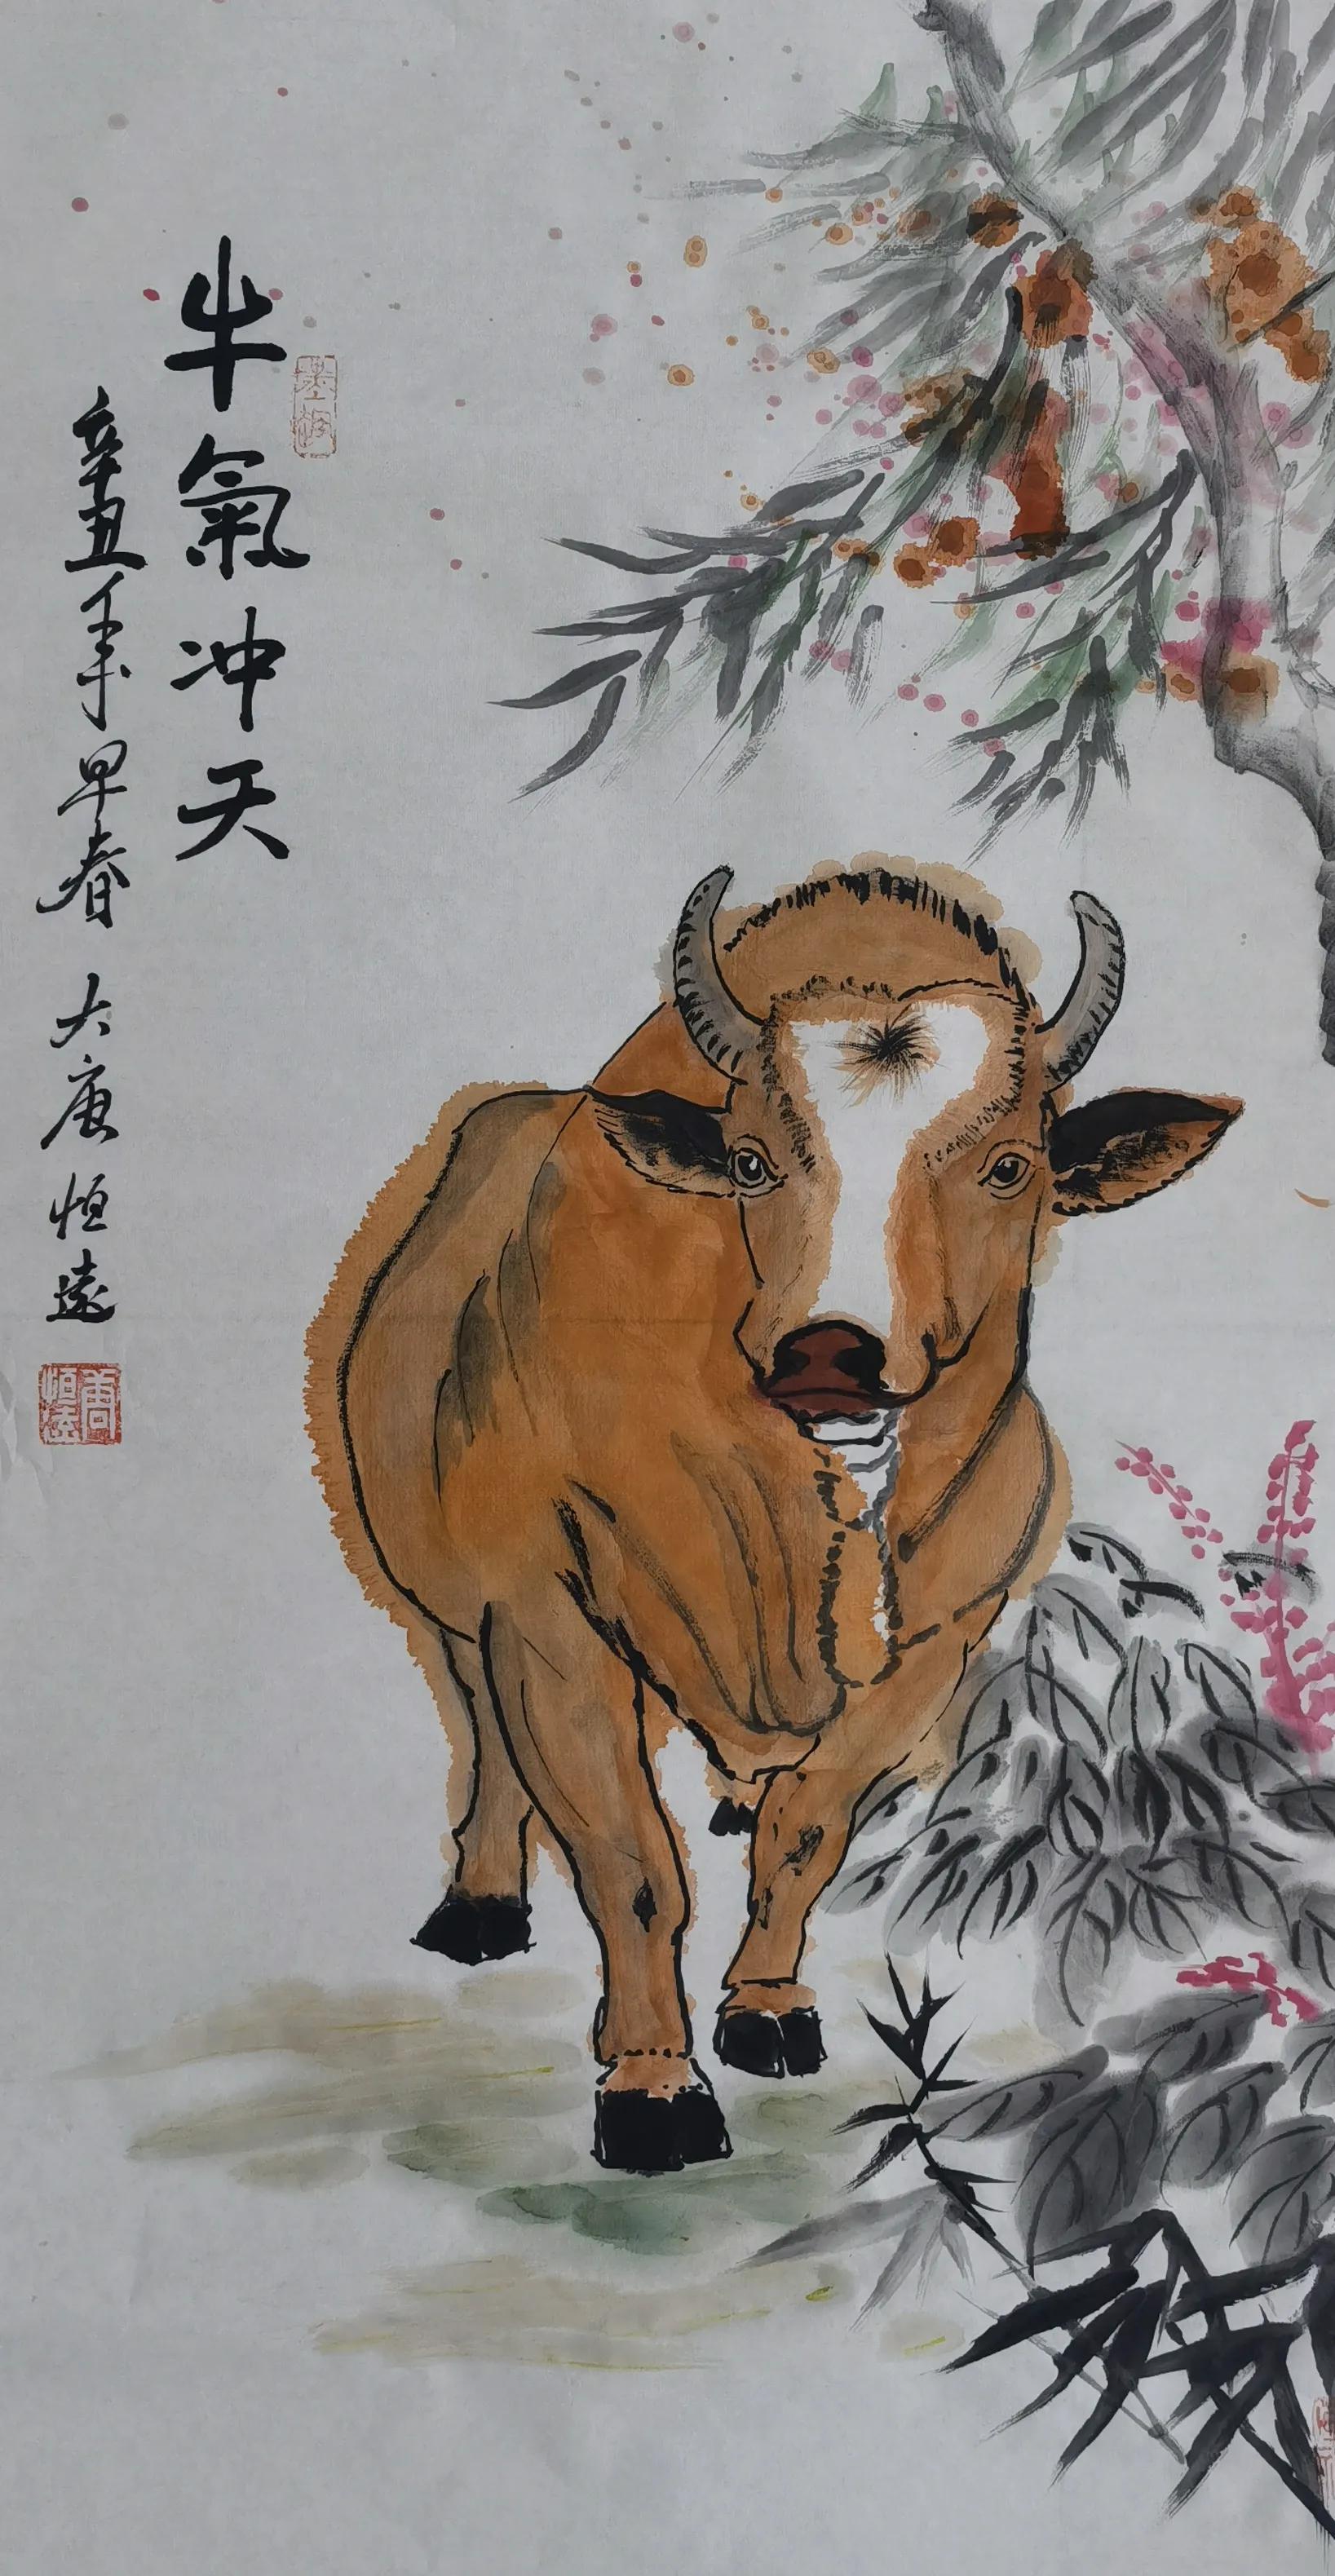 牛氣冲天
辛丑年早春 大唐恒遠